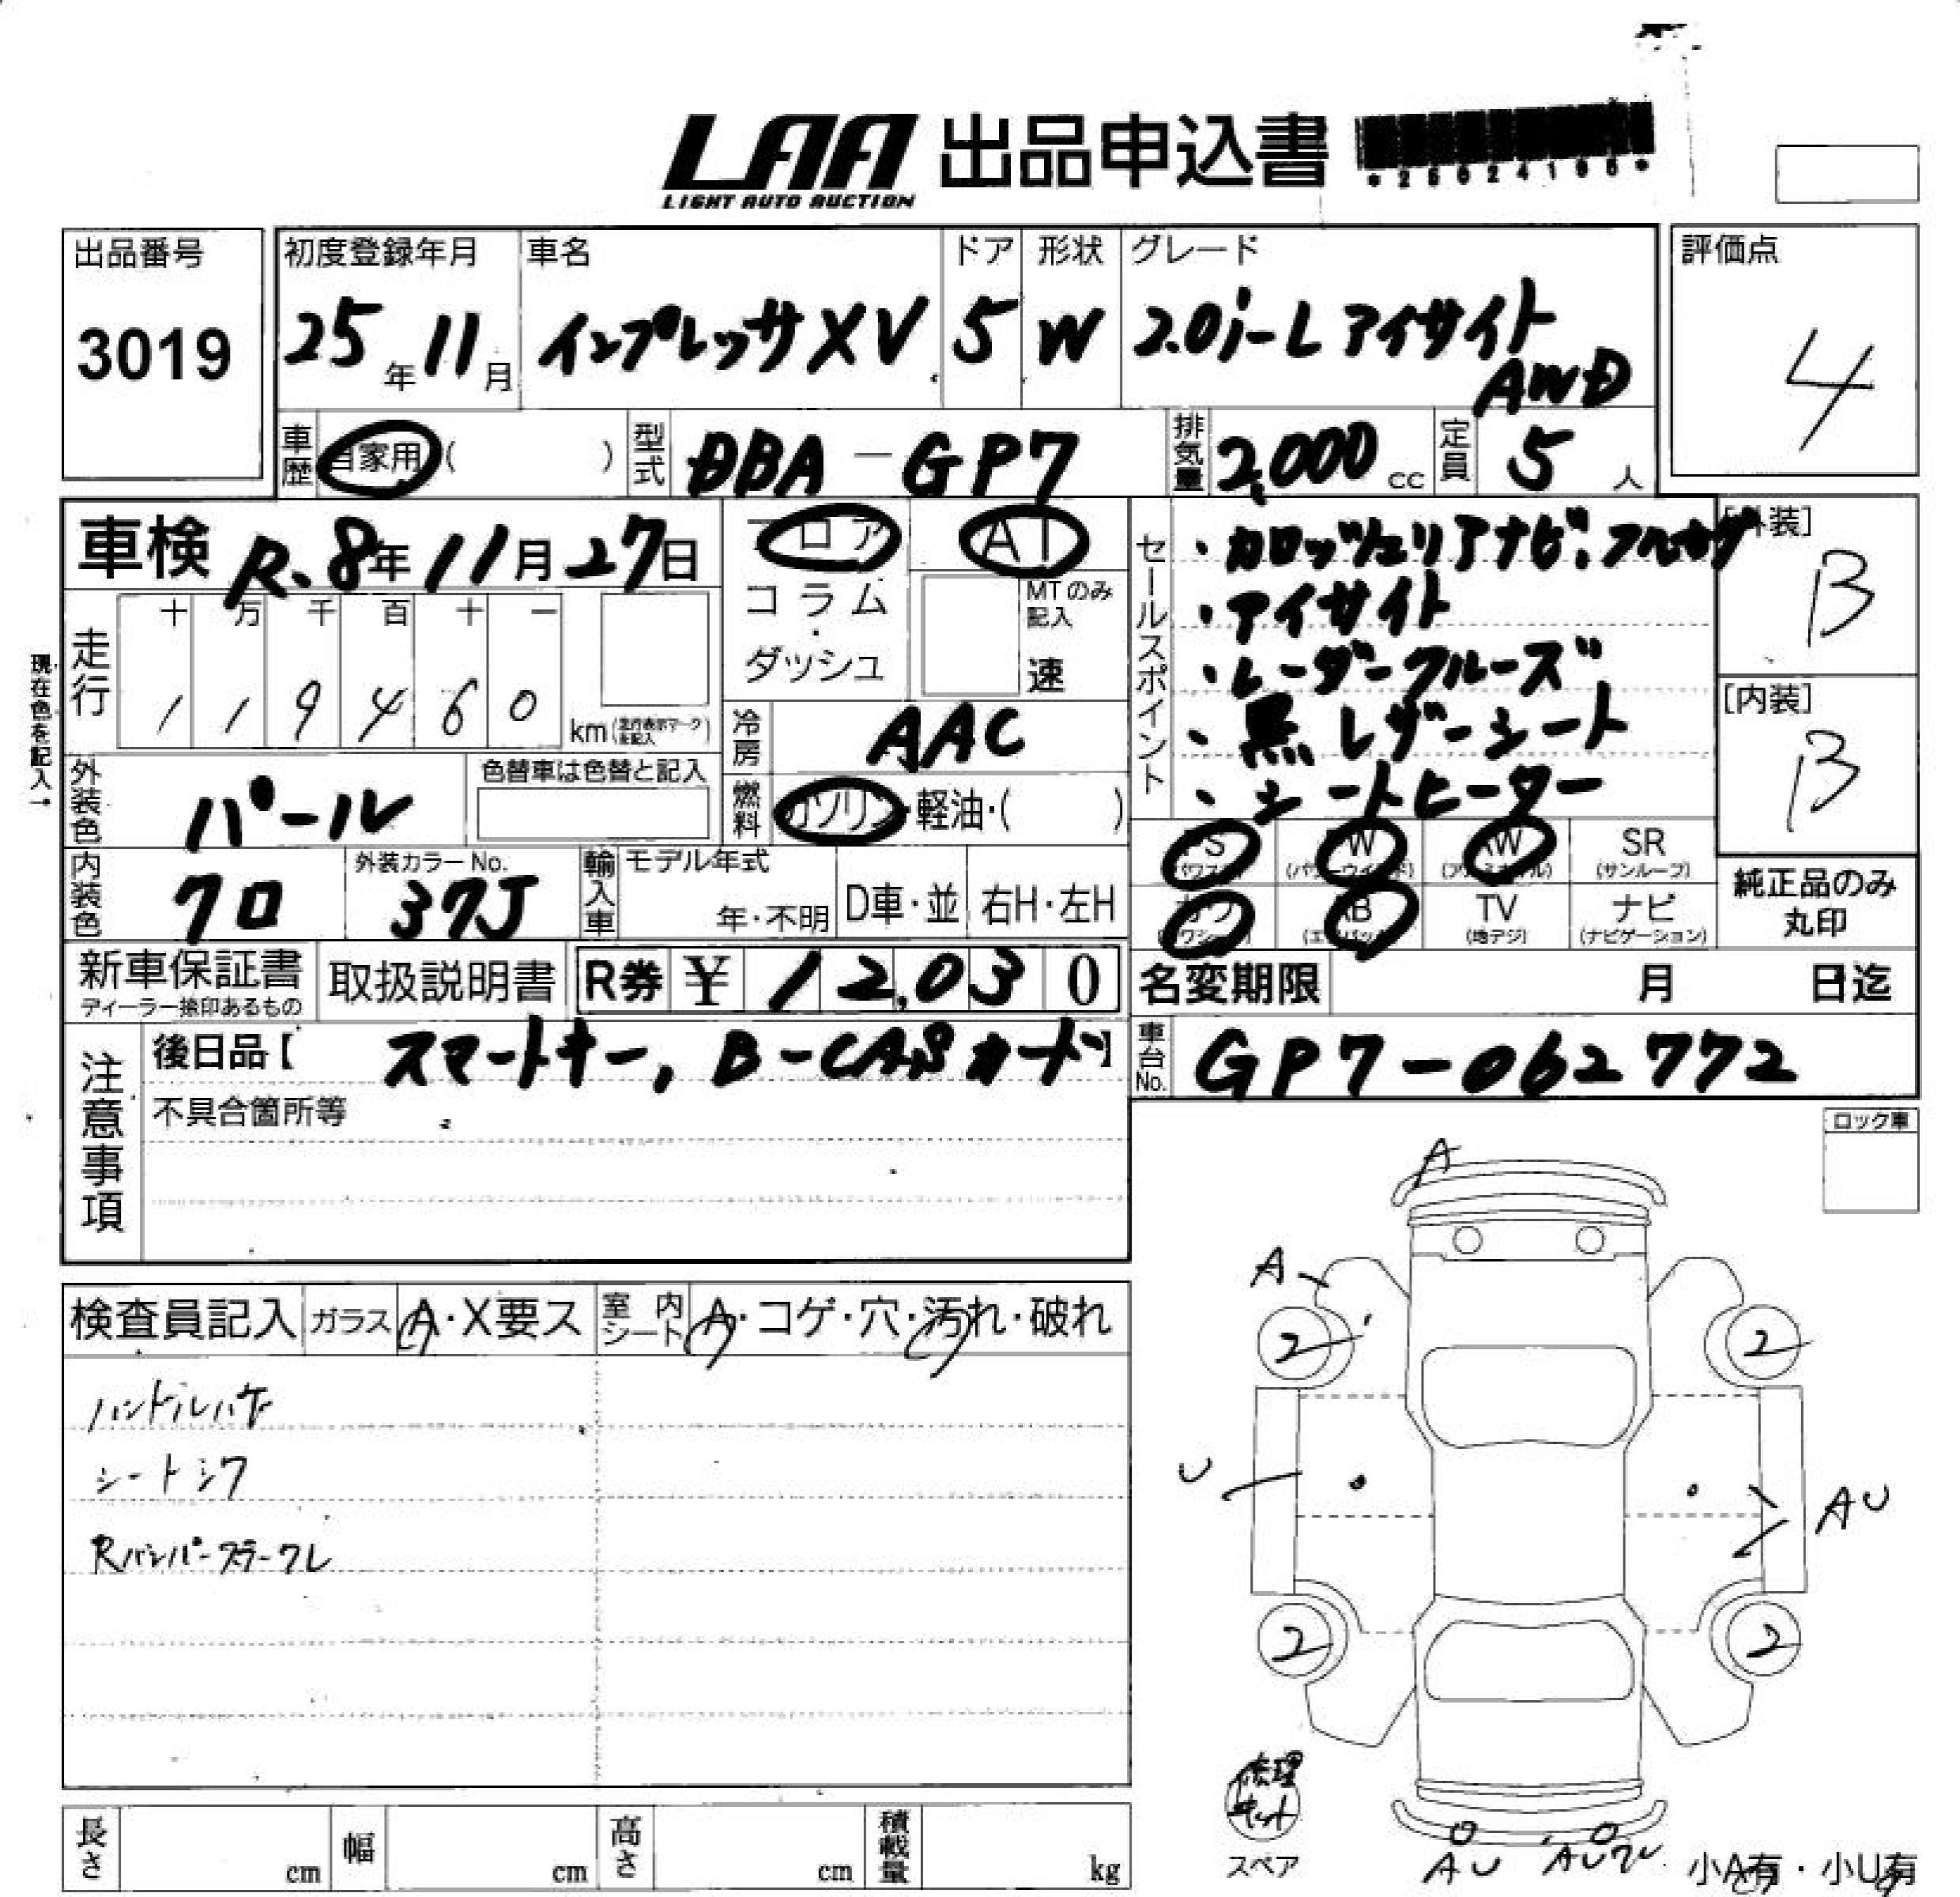 LAA 出品申込書
LIGHT AUTO AUCTION
*25024195*
出品番号
3019
初度登録年月
25年11月
車名
インプレッサXV
ドア
5
形状
W
グレード
2.0i-L アイサイト
AWD
評価点
4
車歴
自家用( )
型式
DBA-GP7
排気量
2,000 cc
定員
5 人
車検 R.8年11月27日
フロア
コラム・
ダッシュ
AT
MTのみ記入
速
セールスポイント
・カロッツェリアナビ、フルセグ
・アイサイト
・レーダークルーズ
・黒レザーシート
・シートヒーター
[外装]
B
[内装]
B
現在色を記入→
走行
十 万 千 百 十 一
1 1 9 4 6 0
km(走行表示マークを記入)
冷房
AAC
外装色
パール
色替車は色替と記入
燃料
ガソリン・軽油・( )
PS
(パワステ)
PW
(パワーウインド)
AW
(アルミホイル)
SR
(サンルーフ)
カワ
(カワシート)
AB
(エアバック)
TV
(地デジ)
ナビ
(ナビゲーション)
純正品のみ
丸印
内装色
クロ
外装カラーNo.
37J
輸入車
モデル年式
年・不明
D車・並
右H・左H
新車保証書
ディーラー捺印あるもの
取扱説明書
R券 ¥ 12,030
名変期限 月 日迄
注意事項
後日品【 スマートキー, B-CASカード】
不具合箇所等
車台No.
GP7-062772
ロック車
検査員記入
ガラス
A・X要ス
室内シート
A・コゲ・穴・汚れ・破れ
ハンドルハゲ
シートシワ
Rバンパーステークレ
A
A
2
2
U
AU
2
2
修理
キット
スペア
AU
AUワレ
小A有・小U有
長さ cm
幅 cm
高さ cm
積載量 kg